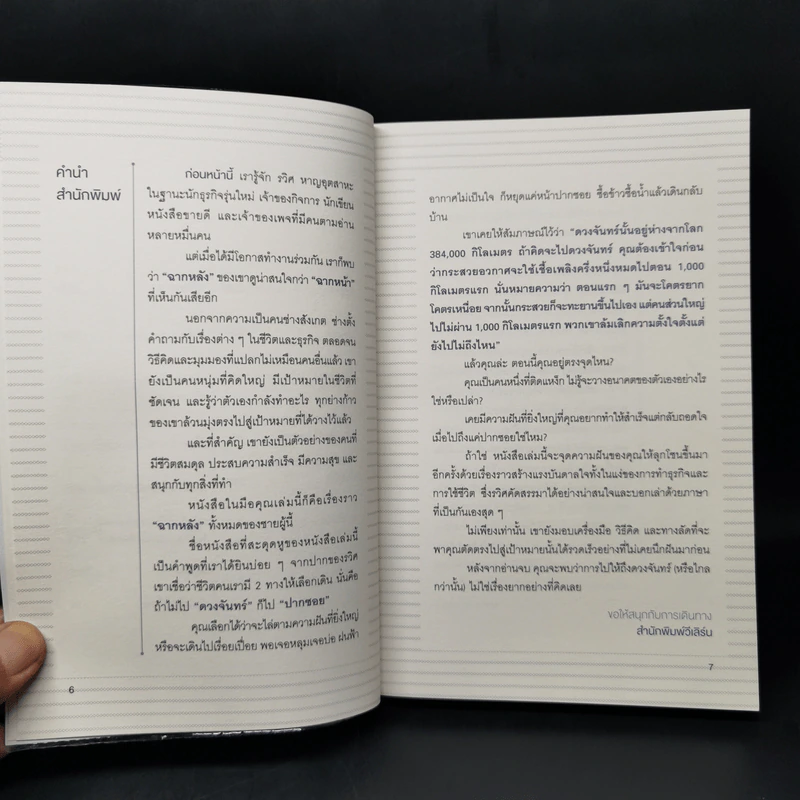 คำนำ
สำนักพิมพ์
ก่อนหน้านี้ เรารู้จัก รวิศ หาญอุตสาหะ
ในฐานะนักธุรกิจรุ่นใหม่ เจ้าของกิจการ นักเขียน
หนังสือขายดี และเจ้าของเพจที่มีคนตามอ่าน
หลายหมื่นคน
แต่เมื่อได้มีโอกาสทำงานร่วมกัน เราก็พบ
ว่า “ฉากหลัง” ของเขาดูน่าสนใจกว่า “ฉากหน้า”
ที่เห็นกันเสียอีก
นอกจากความเป็นคนช่างสังเกต ช่างตั้ง
คำถามกับเรื่องต่าง ๆ ในชีวิตและธุรกิจ ตลอดจน
วิธีคิดและมุมมองที่แปลกไม่เหมือนคนอื่นแล้ว เขา
ยังเป็นคนหนุ่มที่คิดใหญ่ มีเป้าหมายในชีวิตที่
ชัดเจน และรู้ว่าตัวเองกำลังทำอะไร ทุกย่างก้าว
ของเขาล้วนมุ่งตรงไปสู่เป้าหมายที่ได้วางไว้แล้ว
และที่สำคัญ เขายังเป็นตัวอย่างของคนที่
มีชีวิตสมดุล ประสบความสำเร็จ มีความสุข และ
สนุกกับทุกสิ่งที่ทำ
หนังสือในมือคุณเล่มนี้ก็คือเรื่องราว
“ฉากหลัง” ทั้งหมดของชายผู้นี้
ชื่อหนังสือที่สะดุดหูของหนังสือเล่มนี้
เป็นคำพูดที่เราได้ยินบ่อย ๆ จากปากของรวิศ
เขาเชื่อว่าชีวิตคนเรามี 2 ทางให้เลือกเดิน นั่นคือ
ถ้าไม่ไป “ดวงจันทร์” ก็ไป “ปากซอย”
คุณเลือกได้ว่าจะไล่ตามความฝันที่ยิ่งใหญ่
หรือจะเดินไปเรื่อยเปื่อย พอเจอหลุมเจอบ่อ ฝนฟ้า
6
อากาศไม่เป็นใจ ก็หยุดแค่หน้าปากซอย ซื้อข้าวซื้อน้ำแล้วเดินกลับ
บ้าน
เขาเคยให้สัมภาษณ์ไว้ว่า “ดวงจันทร์นั้นอยู่ห่างจากโลก
384,000 กิโลเมตร ถ้าคิดจะไปดวงจันทร์ คุณต้องเข้าใจก่อน
ว่ากระสวยอวกาศจะใช้เชื้อเพลิงครึ่งหนึ่งหมดไปตอน 1,000
กิโลเมตรแรก นั่นหมายความว่า ตอนแรก ๆ มันจะโคตรยาก
โคตรเหนื่อย จากนั้นกระสวยก็จะทะยานขึ้นไปเอง แต่คนส่วนใหญ่
ไปไม่ผ่าน 1,000 กิโลเมตรแรก พวกเขาล้มเลิกความตั้งใจตั้งแต่
ยังไปไม่ถึงไหน”
แล้วคุณล่ะ ตอนนี้คุณอยู่ตรงจุดไหน?
คุณเป็นคนหนึ่งที่ติดแหง็ก ไม่รู้จะวางอนาคตของตัวเองอย่างไร
ใช่หรือเปล่า?
เคยมีความฝันที่ยิ่งใหญ่ที่คุณอยากทำให้สำเร็จแต่กลับถอดใจ
เมื่อไปถึงแค่ปากซอยใช่ไหม?
ถ้าใช่ หนังสือเล่มนี้จะจุดความฝันของคุณให้ลุกโชนขึ้นมา
อีกครั้งด้วยเรื่องราวสร้างแรงบันดาลใจทั้งในแง่ของการทำธุรกิจและ
การใช้ชีวิต ซึ่งรวิศคัดสรรมาได้อย่างน่าสนใจและบอกเล่าด้วยภาษา
ที่เป็นกันเองสุด ๆ
ไม่เพียงเท่านั้น เขายังมอบเครื่องมือ วิธีคิด และทางลัดที่จะ
พาคุณตัดตรงไปสู่เป้าหมายนั้นได้รวดเร็วอย่างที่ไม่เคยนึกฝันมาก่อน
หลังจากอ่านจบ คุณจะพบว่าการไปให้ถึงดวงจันทร์ (หรือไกล
กว่านั้น) ไม่ใช่เรื่องยากอย่างที่คิดเลย
ขอให้สนุกกับการเดินทาง
สำนักพิมพ์วีเลิร์น
7